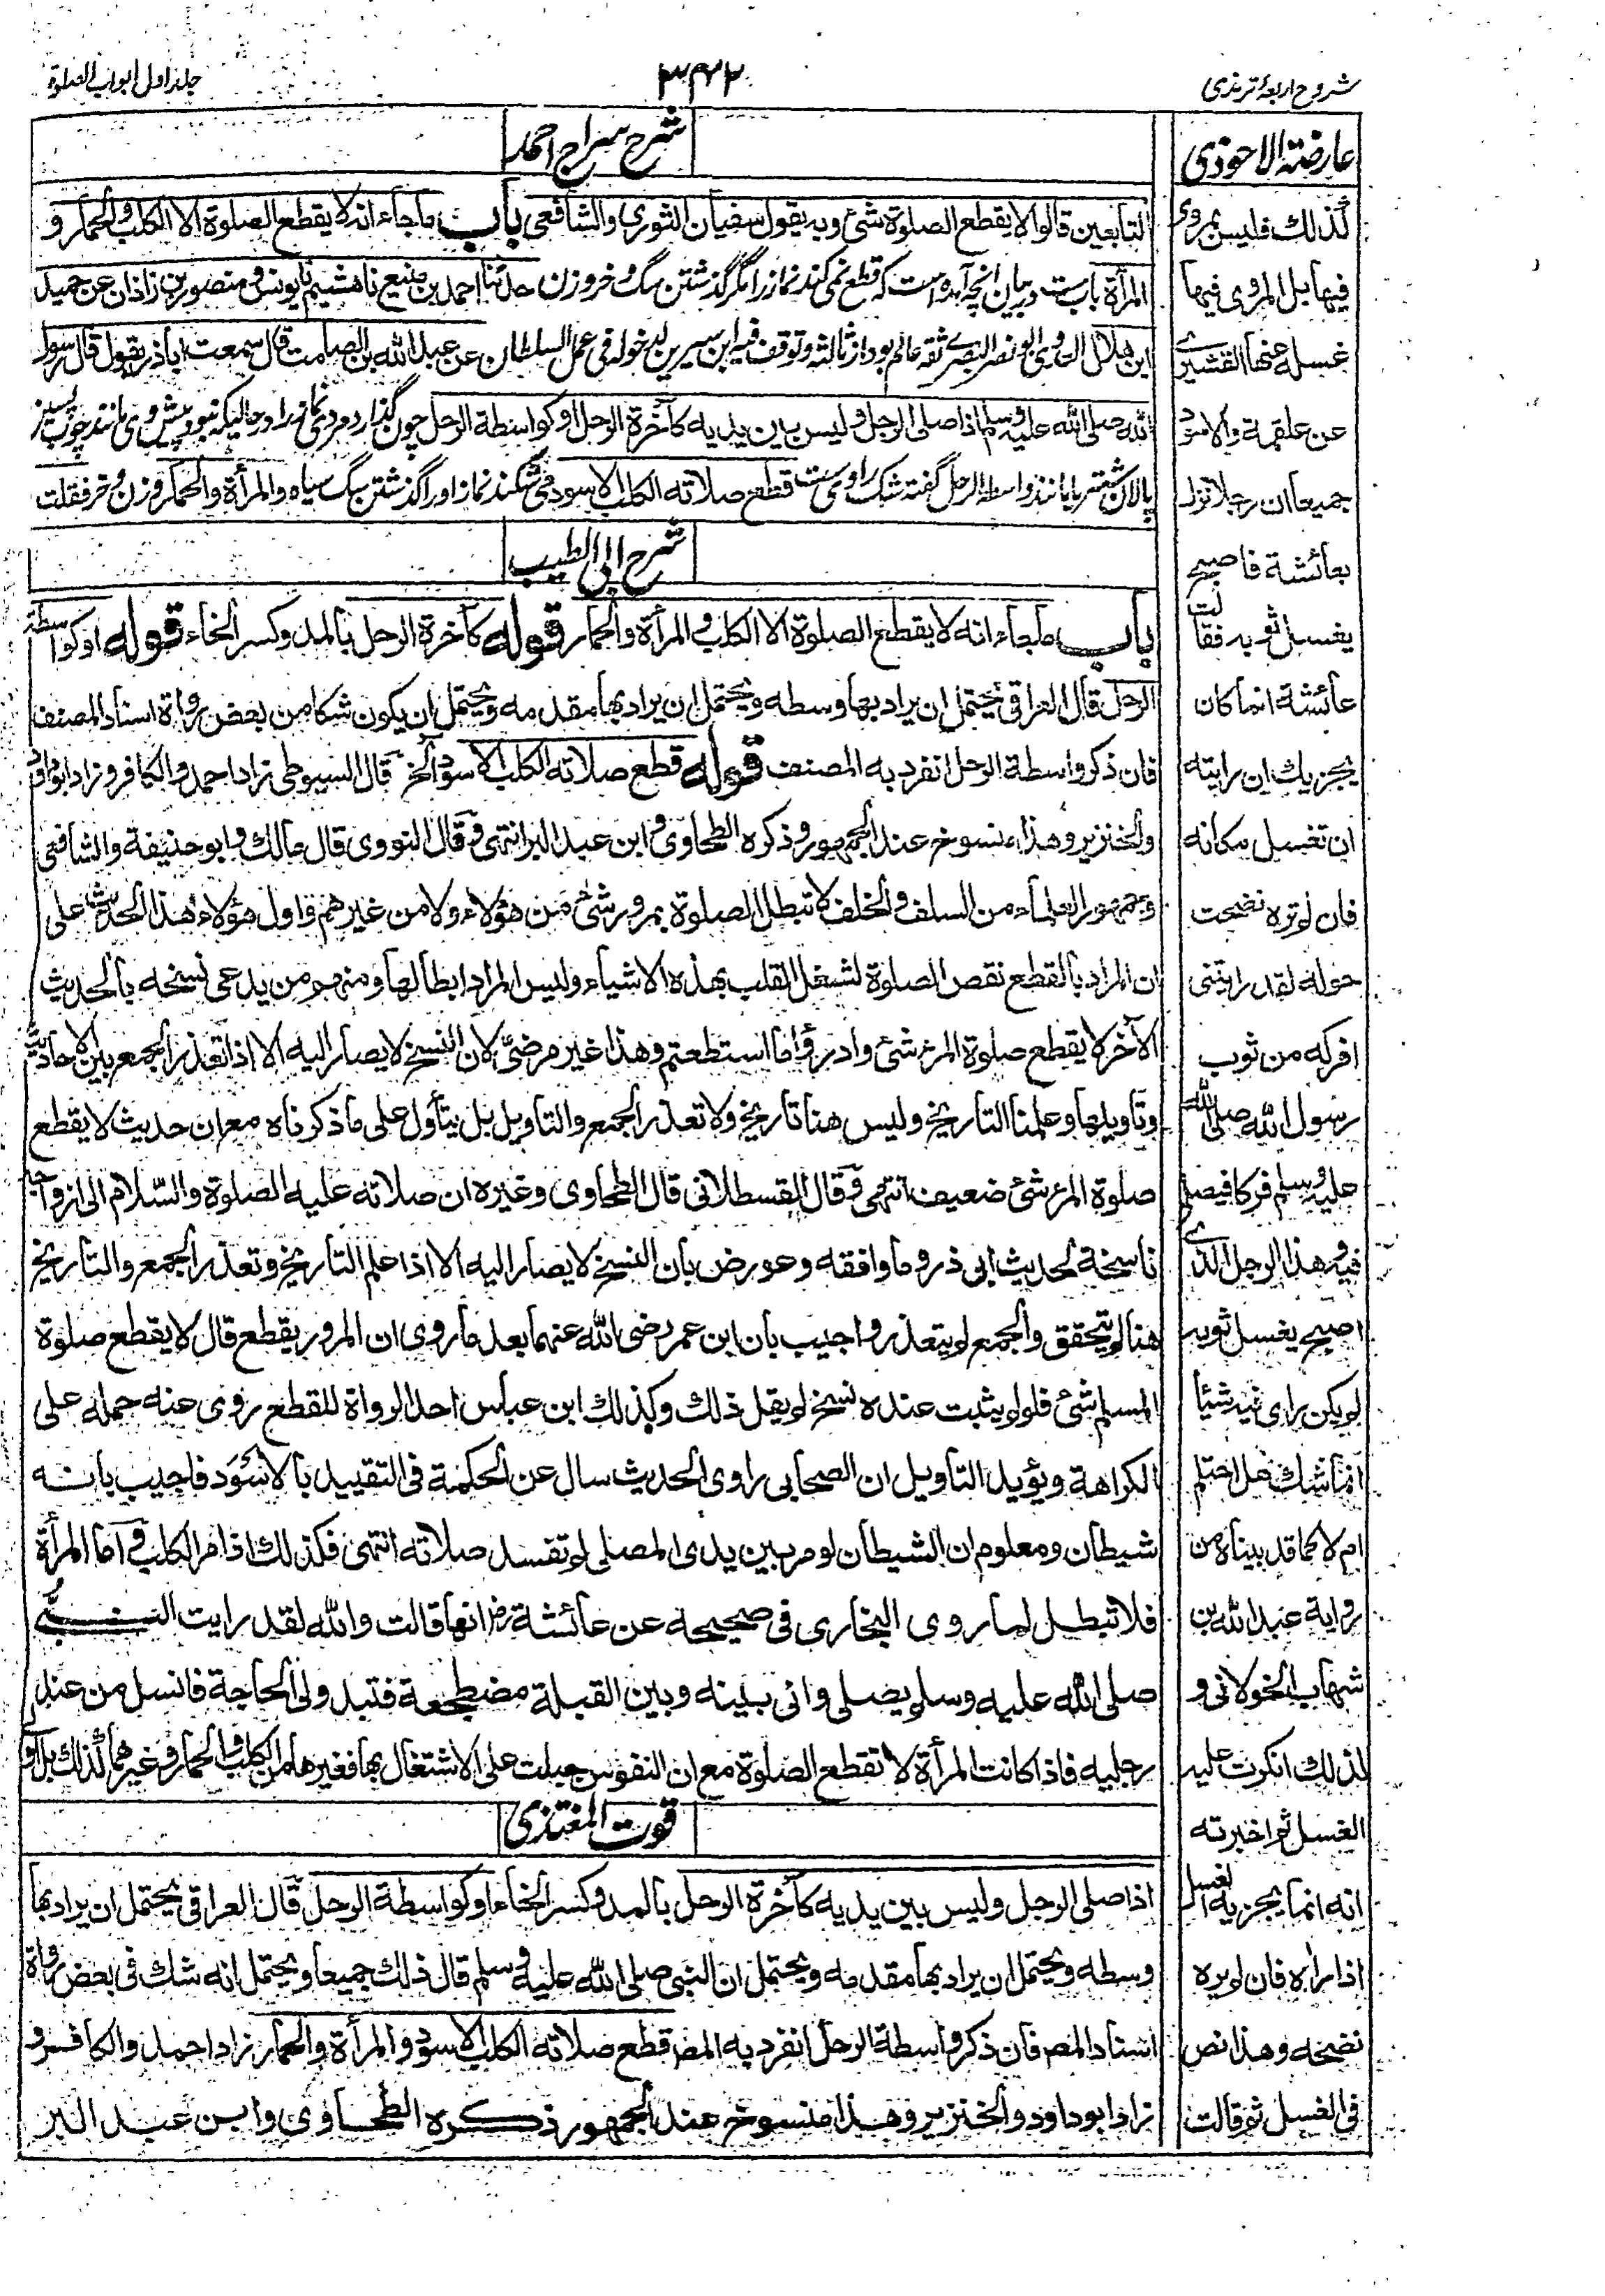 شروح اربعۂ ترمذی
٣٤٢
جلد اول ابواب الصلوة
عارضة الاحوذی
لذلك فليس بمروى
فيها بل المروى فيها
غسله عنها القشيرى
عن علقمة والاسود
جميعا ان رجلا نزل
بعائشة فاصبح
يغسل ثوبه فقالت
عائشة انما كان
يجزيك ان رايته
ان تغسل مكانه
فان لم تره نضحت
حوله لقد رايتنى
افركه من ثوب
رسول الله صلى الله
عليه وسلم فركا فيصلى
فيه وهذا الرجل الذى
اصبح يغسل ثوبه
لم يكن راى فيه شيئا
انما شك هل احتلم
ام لا كما قد بيناه من
رواية عبد الله بن
شهاب الخولانى و
لذلك انكرت عليه
الغسل ثم اخبرته
انه انما يجزيه الغسل
اذا راه فان لم يره
نضحه وهذا نص
فى الغسل ثم قالت
شرح سراج احمد
التابعين قالوا لا يقطع الصلوة شئ وبه يقول سفيان الثورى والشافعى باب ماجاء انه لا يقطع الصلوة الا الكلب والحمار و
المرأة باب ست در بيان انچه آمده است كه قطع نمی كند نماز را مگر گذشتن سگ و خر و زن حدثنا احمد بن منيع نا هشيم نا يونس و منصور بن زاذان عن حميد
ابن هلال العدوى ابو نصر البصرى ثقه عالم بود از ثالثه و توقف فيه ابن سيرين لدخوله فى عمل السلطان عن عبد الله بن الصامت قال سمعت اباذر يقول قال رسول
الله صلى الله عليه وسلم اذا صلى الرجل وليس بين يديه كآخرة الرجل او كواسطة الرحل چون گذارد مردی نماز را در حاليكه نبود پيش وی مانند چوب پسين
پالان شتر يا مانند واسطه الرحل گفته شك راوی ست قطع صلاته الكلب الاسود می شكند نماز او را گذشتن سگ سياه والمرأة والحمار و زن و خر فقلت
شرح ابی الطيب
باب ماجاء انه لا يقطع الصلوة الا الكلب والمرأة والحمار قوله كآخرة الرحل بالمد وكسر الخاء قوله او كواسطة
الرحل قال العراقى يحتمل ان يراد بها وسطه ويحتمل ان يراد بها مقدمه ويحتمل ان يكون شكا من بعض رواة اسناد المصنف
فان ذكر واسطة الرحل انفرد به المصنف قوله قطع صلاته الكلب الاسود الخ قال السيوطى زاد احمد والكافر وزاد ابو داود
والخنزير وهذا منسوخ عند الجمهور وذكره الطحاوى وابن عبد البر انتهى وقال النووى قال مالك وابو حنيفة والشافعى
وجمهور العلماء من السلف والخلف لا تبطل الصلوة بمرور شئ من هؤلاء ولا من غيرهم واول هؤلاء هذا الحديث على
ان المراد بالقطع نقص الصلوة لشغل القلب بهذه الاشياء وليس المراد ابطالها ومنهم من يدعى نسخه بالحديث
الآخر لا يقطع صلوة المرء شئ وادرؤا ما استطعتم وهذا غير مرضىّ لان النسخ لا يصار اليه الا اذا تعذر الجمع بين الاحاديث
وتأويلها وعلمنا التاريخ وليس هنا تاريخ ولا تعذر الجمع والتاويل بل يتأول على ما ذكرناه مع ان حديث لا يقطع
صلوة المرء شئ ضعيف انتهى وقال القسطلانى قال الطحاوى وغيره ان صلاته عليه الصلوة والسلام الى ازواجه
ناسخة لحديث ابى ذر وما وافقه وعورض بان النسخ لا يصار اليه الا اذا علم التاريخ وتعذر الجمع والتاريخ
هنا لم يتحقق والجمع لم يتعذر واجيب بان ابن عمر رضى الله عنهما بعد ما روى ان المرور يقطع قال لا يقطع صلوة
المسلم شئ فلو لم يثبت عنده نسخ لم يقل ذلك وكذلك ابن عباس احد الرواة للقطع روى عنه حمله على
الكراهة ويؤيد التاويل ان الصحابى راوى الحديث سال عن الحكمة فى التقييد بالاسود فاجيب بانه
شيطان ومعلوم ان الشيطان لو مر بين يدى المصلى لم تفسد صلاته انتهى فكذلك اذا مر الكلب واما المرأة
فلا تبطل لما روى البخارى فى صحيحه عن عائشة رض انها قالت والله لقد رايت النبى
صلى الله عليه وسلم يصلى وانى بينه وبين القبلة مضطجعة فتبدو لى الحاجة فانسل من عند
رجليه فاذا كانت المرأة لا تقطع الصلوة مع ان النفوس جبلت على الاشتغال بها فغيرها من الكلب والحمار وغيرهما كذلك بل اولى
قوت المغتذی
اذا صلى الرجل وليس بين يديه كآخرة الرحل بالمد وكسر الخاء او كواسطة الرحل قال العراقى يحتمل ان يراد بها
وسطه ويحتمل ان يراد بها مقدمه ويحتمل ان النبى صلى الله عليه وسلم قال ذلك جميعا ويحتمل انه شك فى بعض رواة
اسناد المصـ فان ذكر واسطة الرحل انفرد به المصـ قطع صلاته الكلب الاسود والمرأة والحمار زاد احمد والكافر و
زاد ابو داود والخنزير وهذا منسوخ عند الجمهور ذكره الطحاوى وابن عبد البر